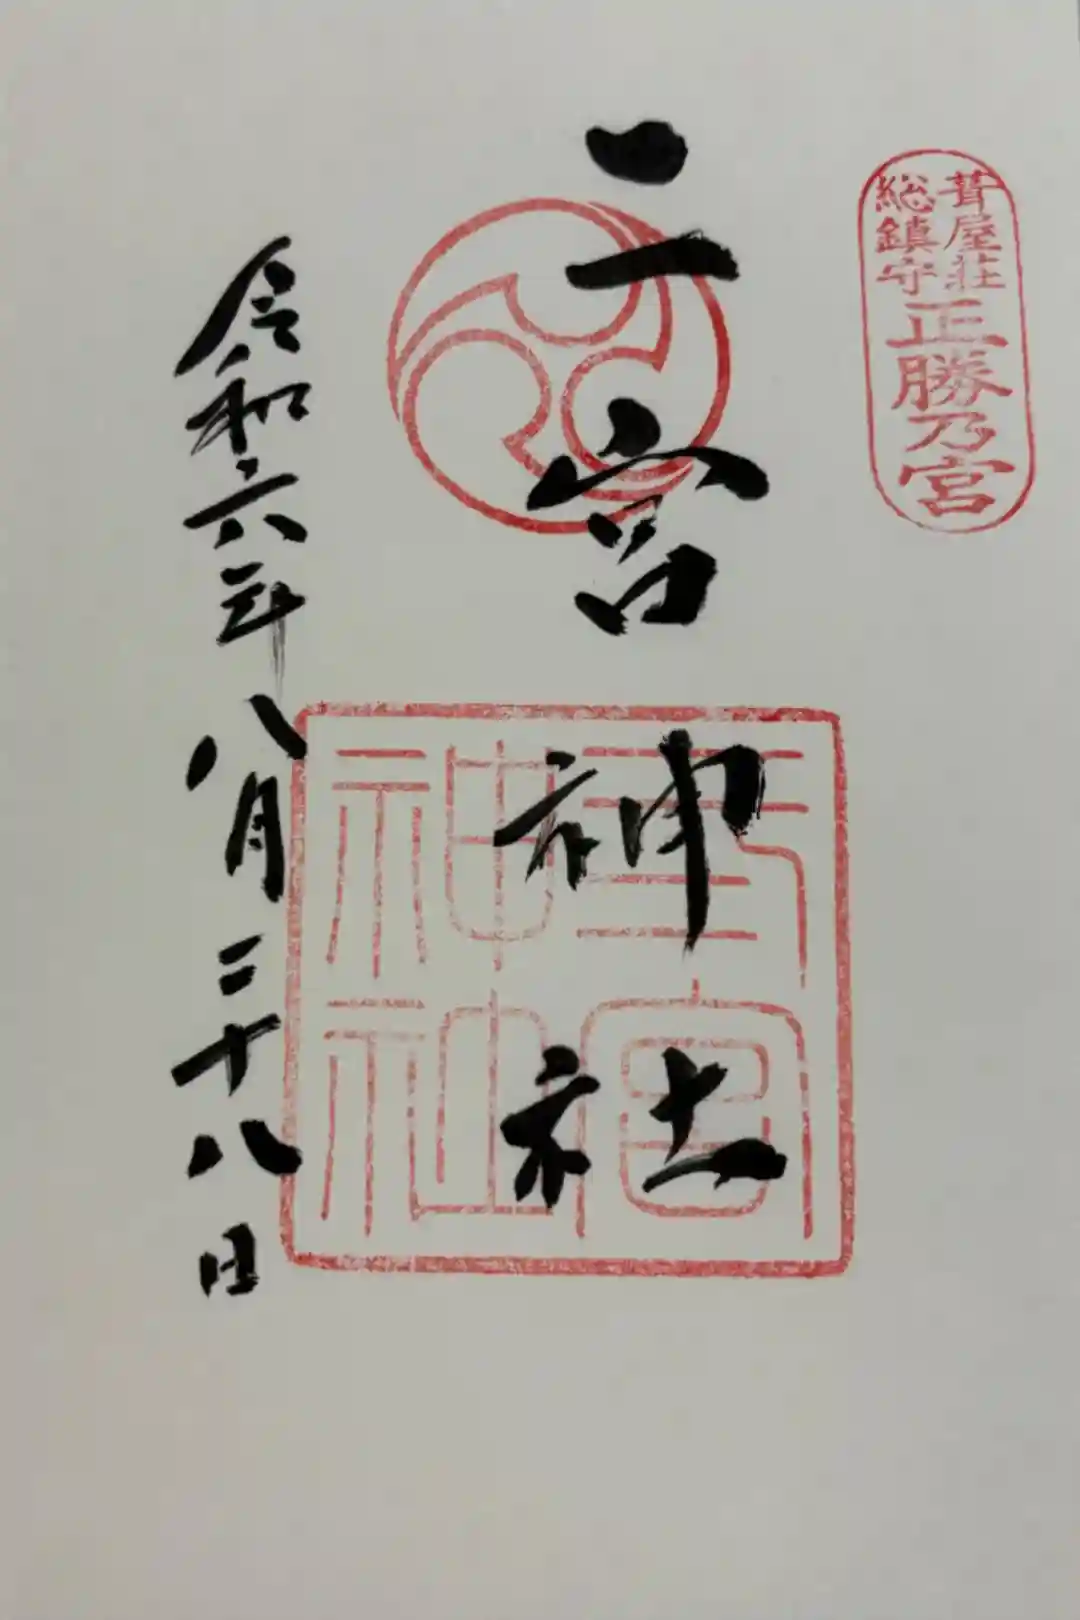 葺屋荘
総鎮守
正勝乃宮
二宮神社
令和六年八月二十八日
二宮
神社